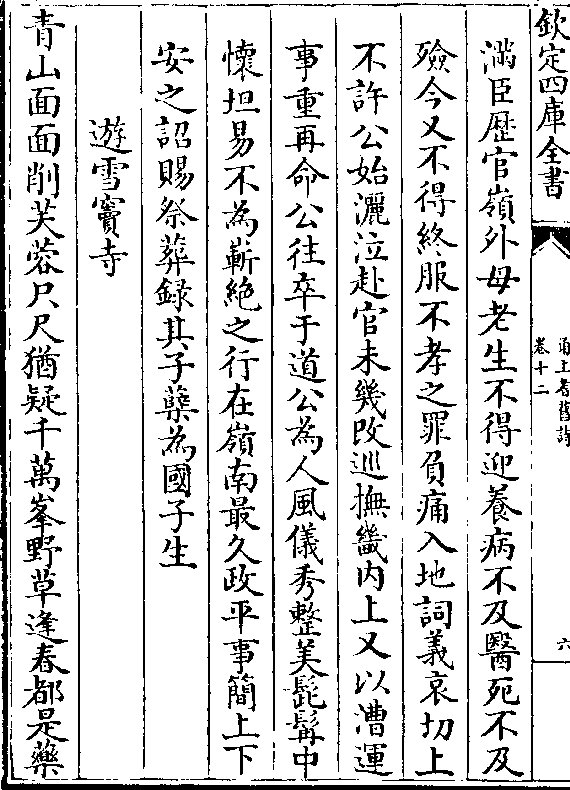 欽定四庫全書
甬上耆舊詩
卷十二
六
滿臣歴官嶺外母老生不得迎養病不及醫死不及
殮今又不得終服不孝之罪負痛入地詞義哀切上
不許公始灑泣赴官未幾改巡撫畿内上又以漕運
事重再命公往卒于道公為人風儀秀整美髭髯中
懷坦易不為嶄絶之行在嶺南最久政平事簡上下
安之詔賜祭葬録其子蘖為國子生
遊雪竇寺
青山面面削芙蓉尺尺猶疑千萬峯野草逢春都是藥